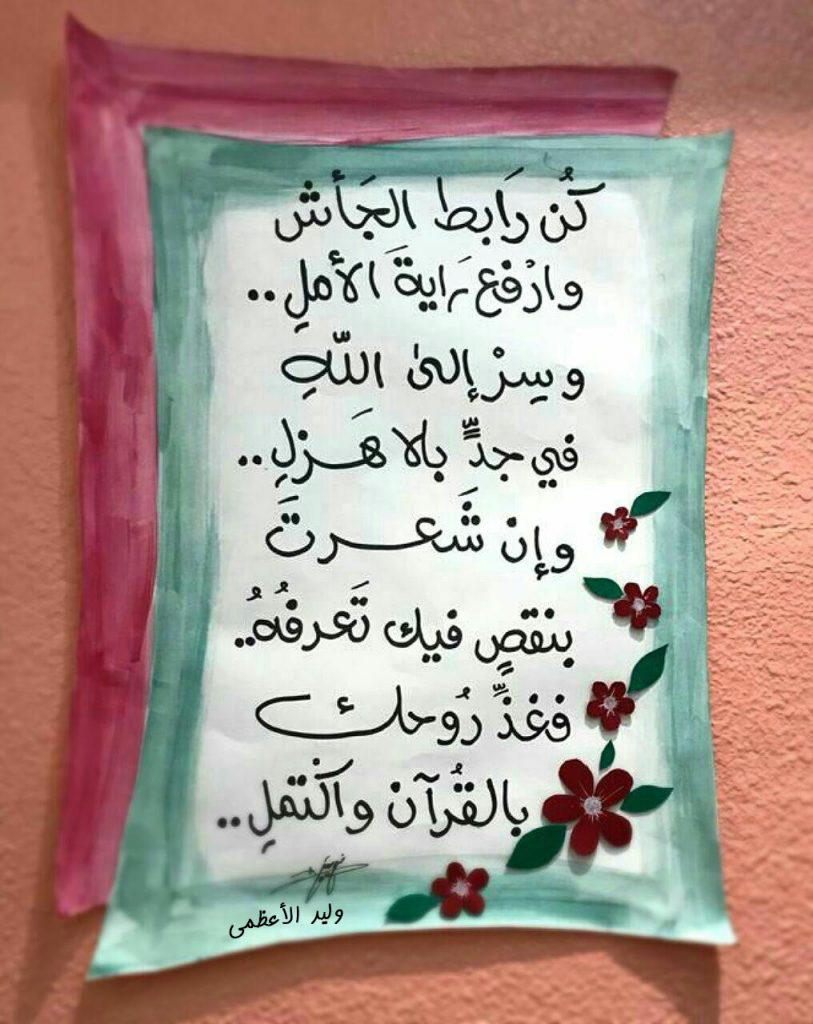 كُن رَابط الجَأش
وارْفع رَايةَ الأملِ..
وسِرْ إلىٰ اللّهِ
في جدٍّ بلا هَزلِ..
وإن شَعرتَ
بنقصٍ فيك تَعرفُهُ..
فغذِّ رُوحك
بالقُرآن واكْتملِ..
وليد الأعظمى